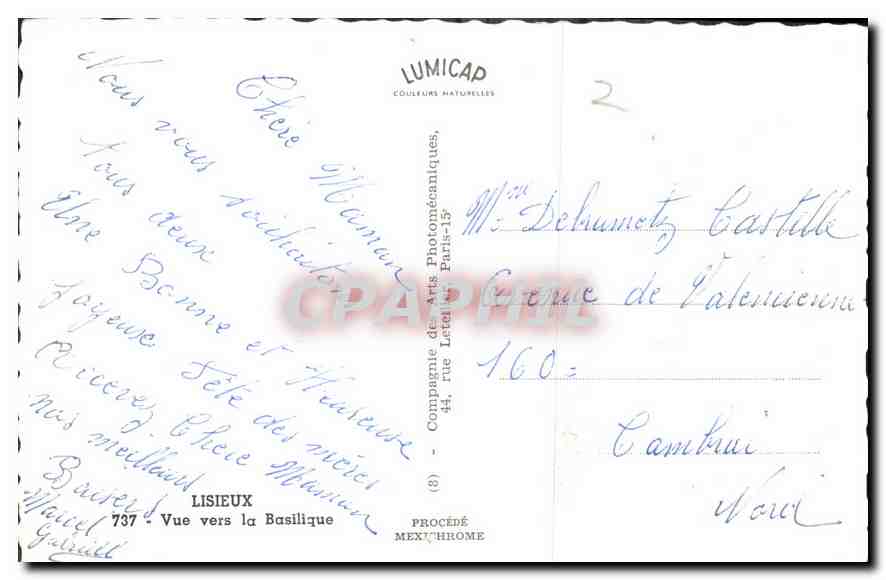 LUMICAP
COULEURS NATURELLES
2
Chère Maman
Nous vous souhaitons
tous deux
Une Bonne et Heureuse
Joyeuse Fête des mères
Recevez Chère Maman
nos meilleurs
Baisers
Marcel
LISIEUX
737 - Vue vers la Basilique
(8) - Compagnie des Arts Photomécaniques,
44, rue Letellier, Paris-15e
PROCÉDÉ
MEXICHROME
CPAPHIL
Mme Castille
Avenue de Valencienne
160
Cambrai
Nord